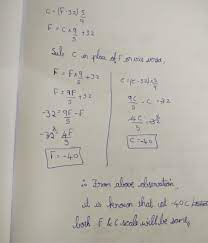 C = (F-32) 5/9
F = C x 9/5 + 32
Sub C in place of F or vice versa.
F = F x 9/5 + 32
F = 9F/5 + 32
-32 = 9F/5 - F
-32 = 4F/5
F = -40
C = (C-32) 5/9
9C/5 - C = -32
4C/5 = -32
C = -40
∴ From above observation,
it is known that at -40C
both F & C scale will be same.